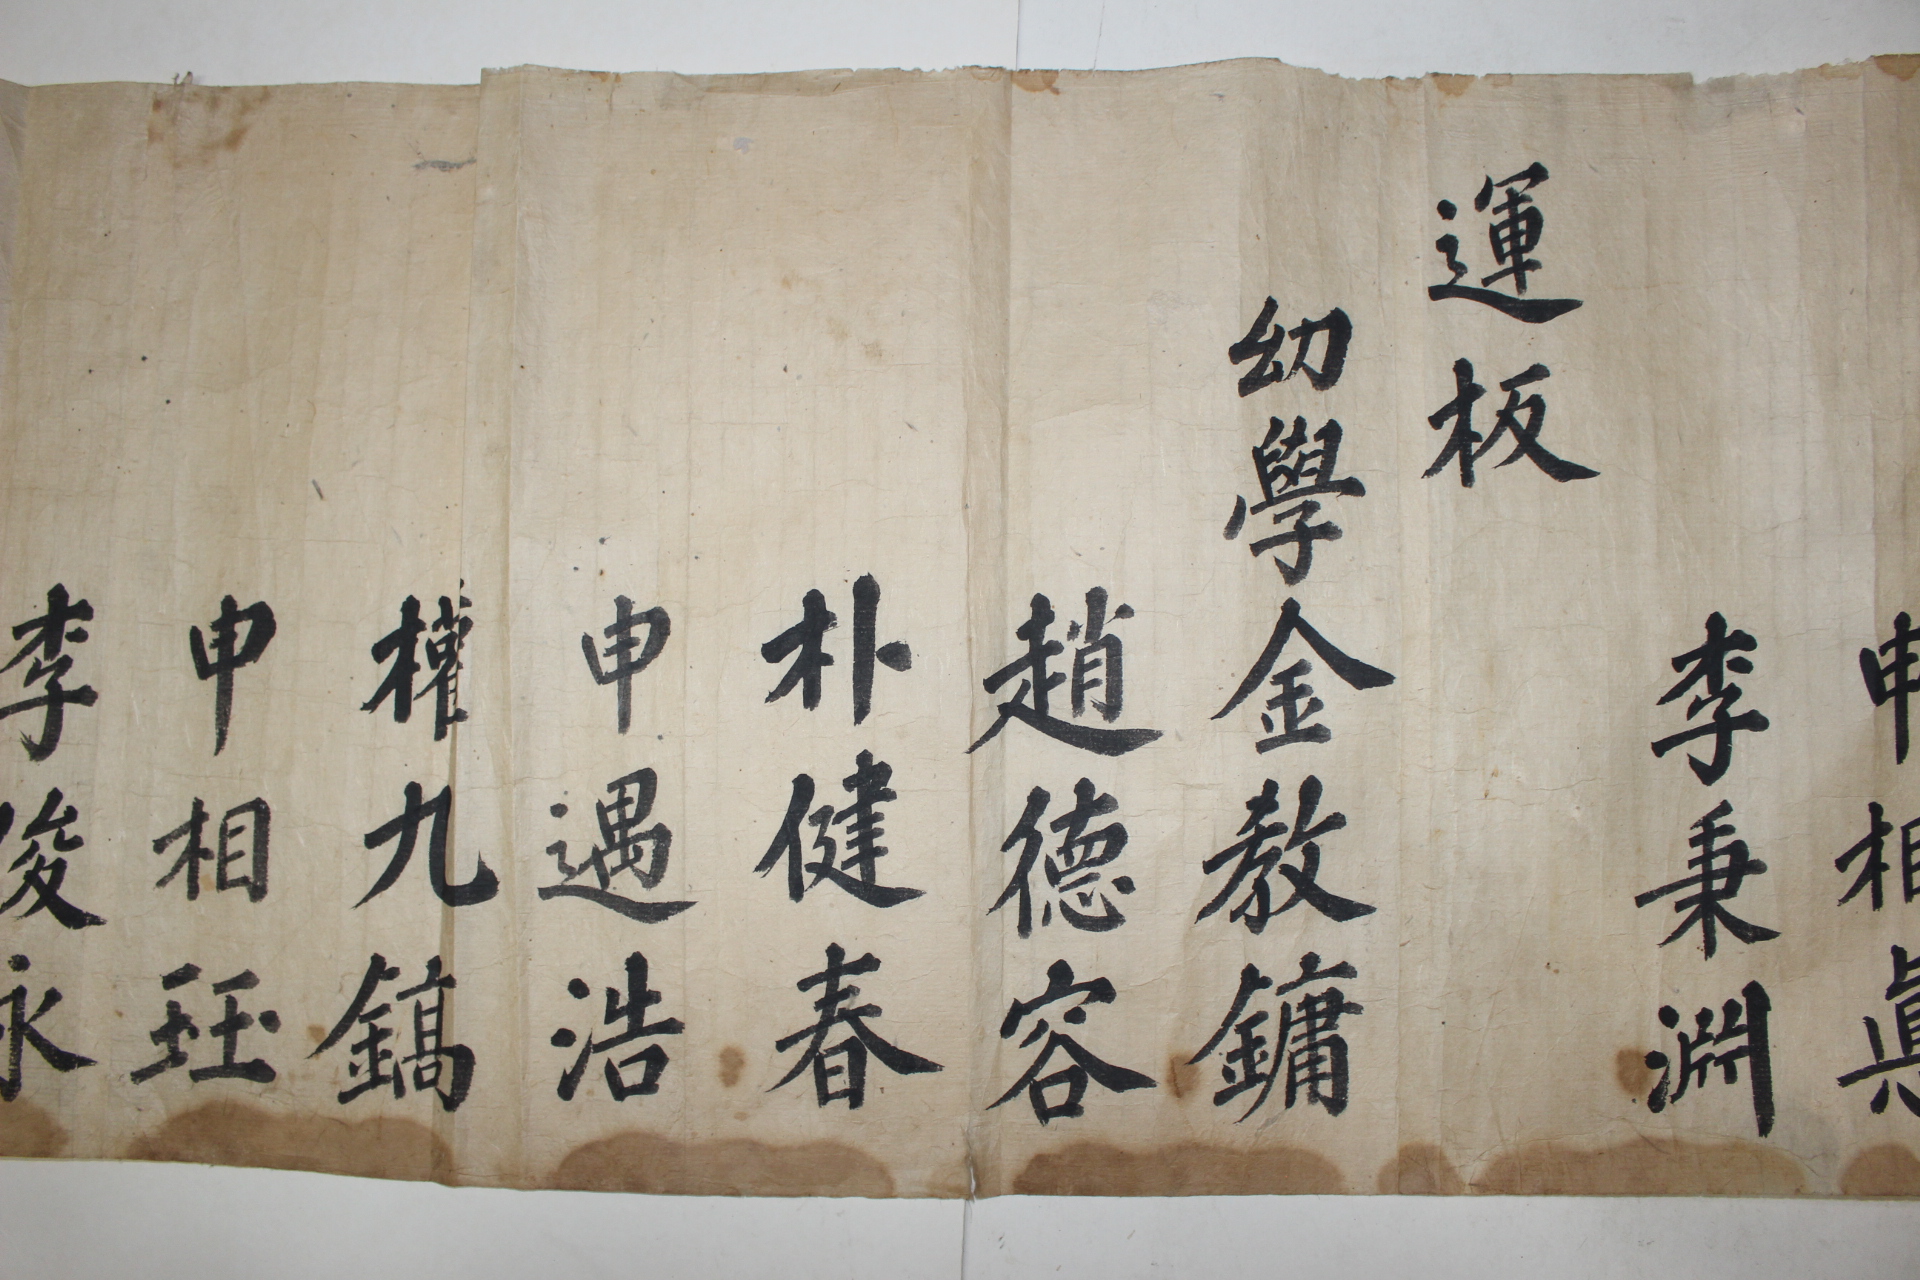 申相眞
李秉淵
運板
幼學金教鏞
趙德容
朴健春
申遇浩
權九鎬
申相珏
李俊永